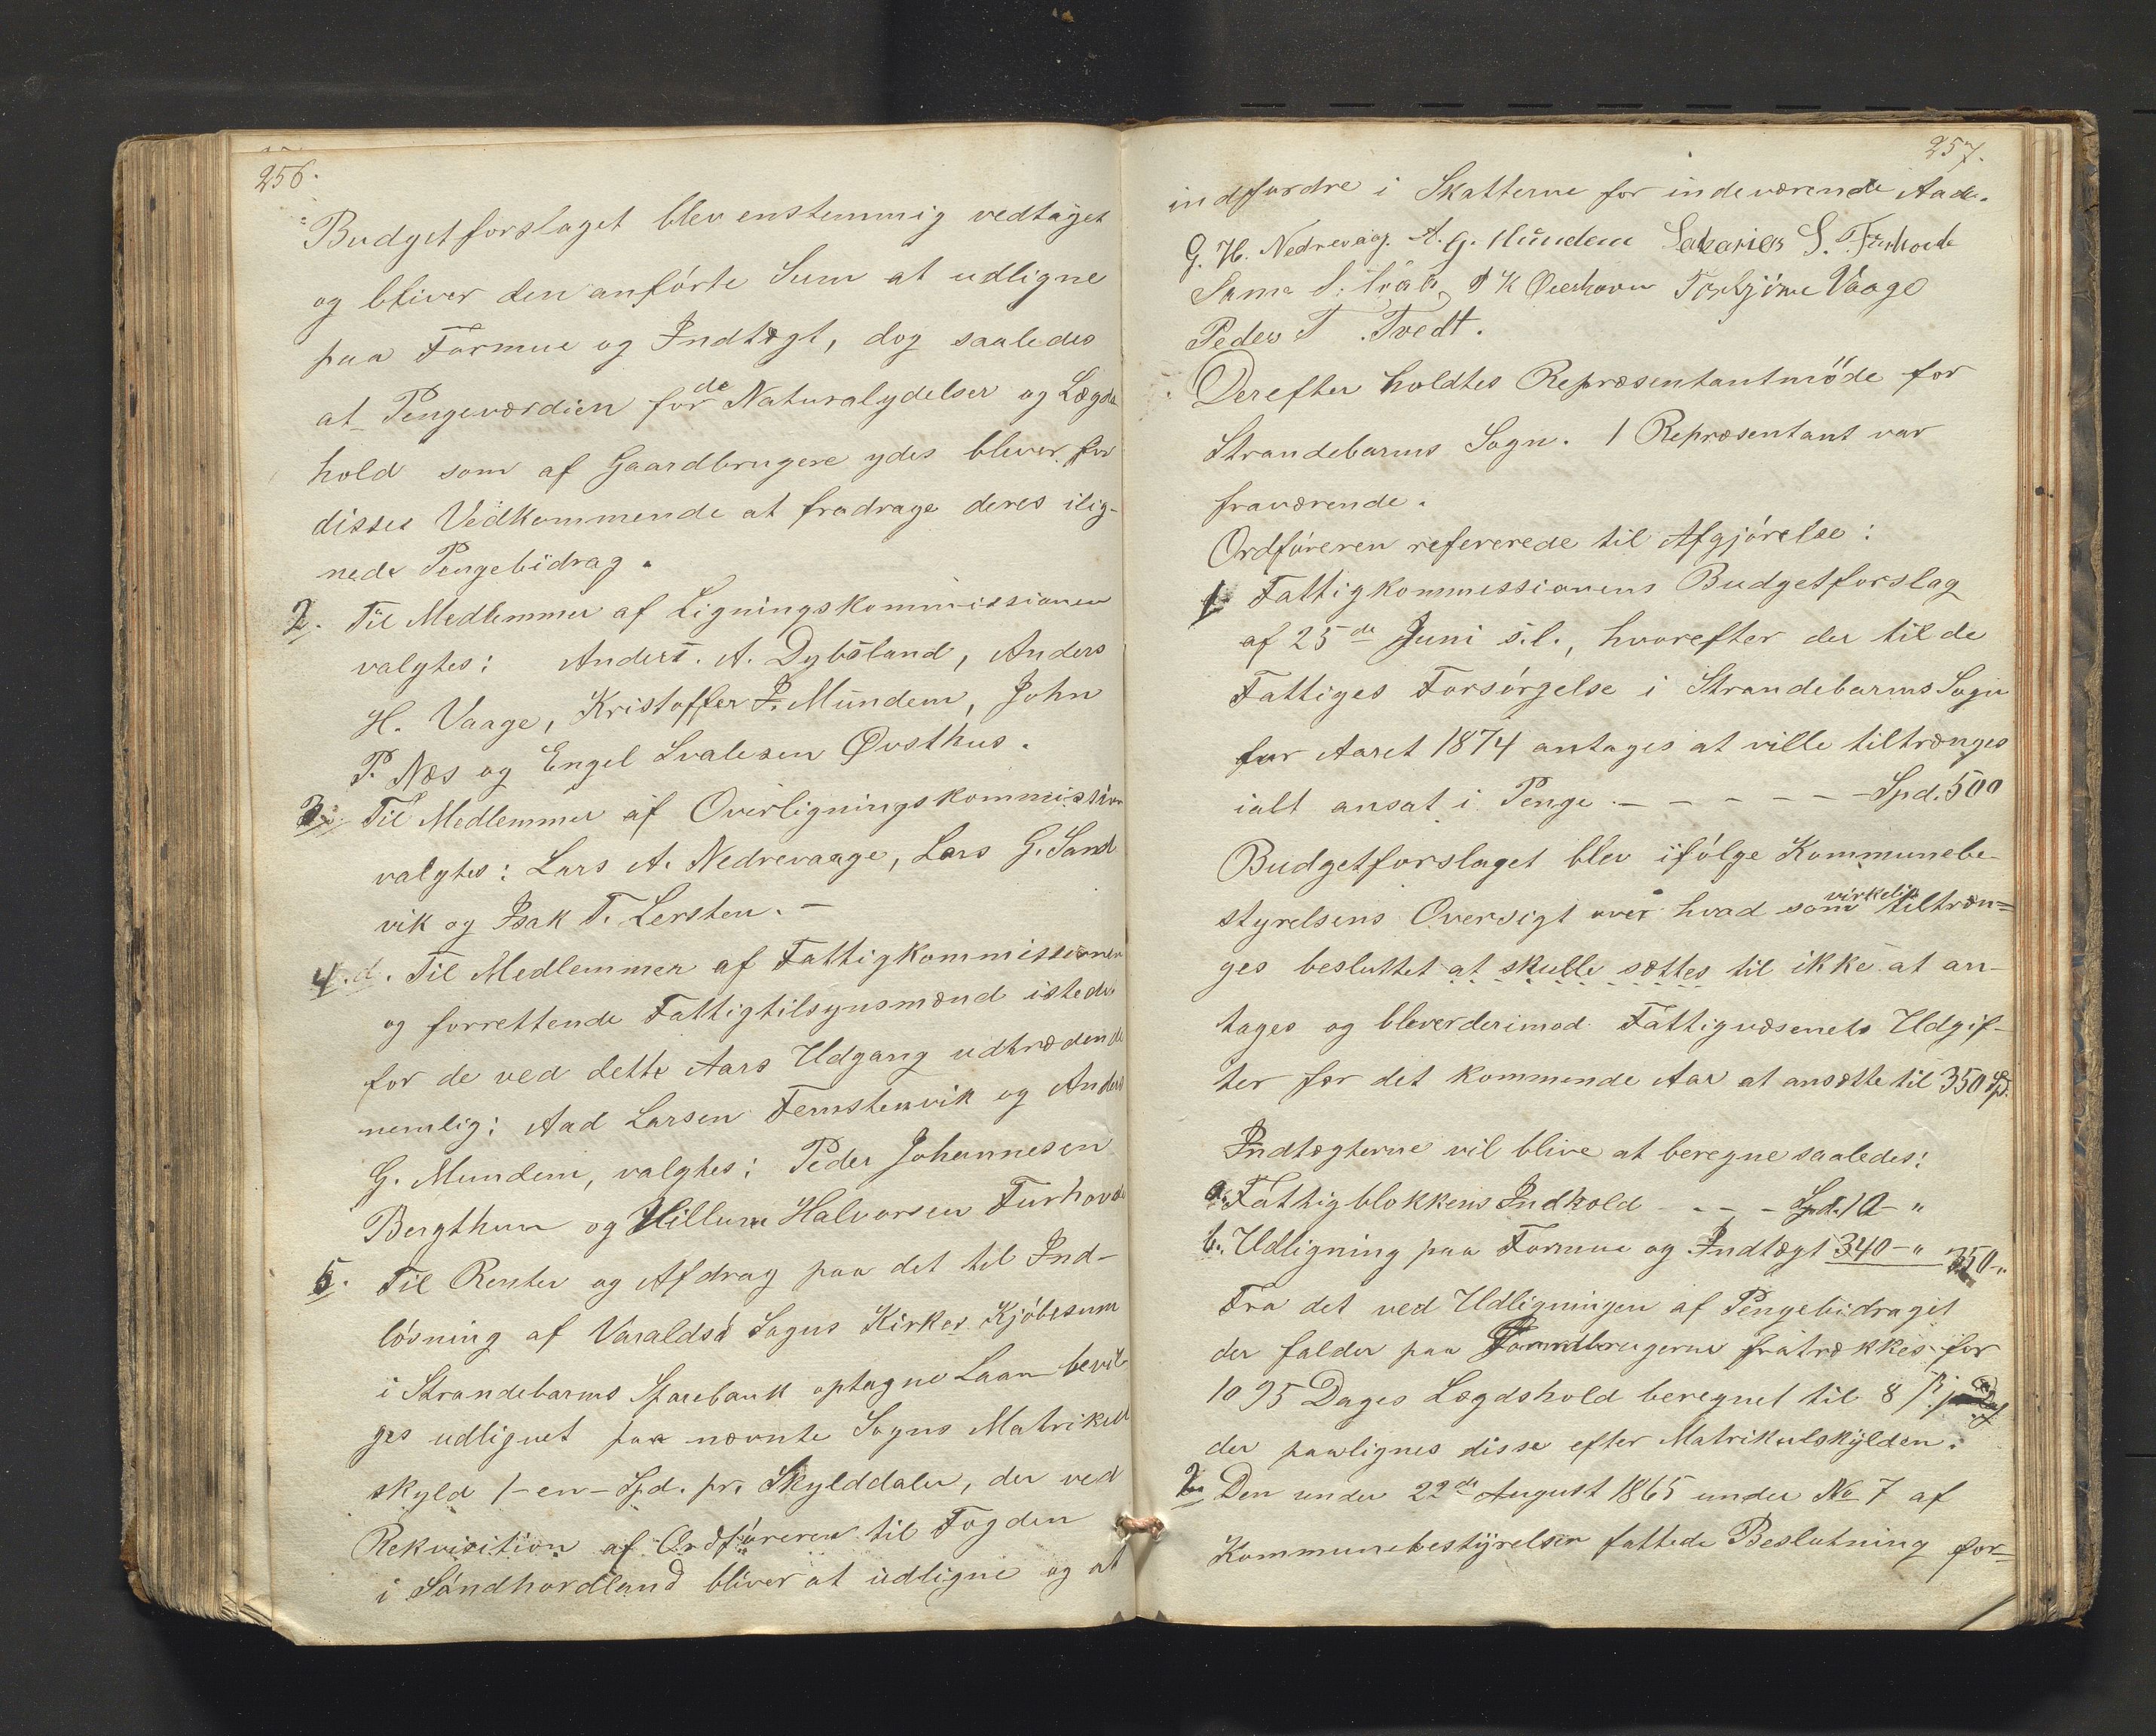 256.
Budgetforslaget blev enstemmig vedtaget
og bliver den anförte Sum at udligne
paa Formue og Indtægt, dog saaledes
at Pengeværdien for de Naturalydelser og Lægds
hold som af Gaardbrugere ydes bliver for
disses Vedkommende at fradrage deres ilig-
nede Pengebidrag.
2. Til Medlemmer af Ligningskommissionen
valgtes: Anders A. Dybsland, Anders
H. Vaage, Kristoffer J. Mundem, John
P. Næs og Engel Svalesen Øvsthus.
3. Til Medlemmer af Overligningskommission
valgtes: Lars A. Nedrevaage, Lars G. Sand
vik og Isak T. Lersten. –
4.d. Til Medlemmer af Fattigkommissionen
og forrettende Fattigtilsynsmænd istedet
for de ved dette Aars Udgang udtrædende
nemlig: Aad Larsen Femstenvik og Anders
G. Mundem, valgtes: Peder Johannesen
Bergthun og Hillum Halvorsen Furhovde
5. Til Renter og Afdrag paa det til Ind-
lösning af Varaldsö Sogns Kirkes Kjöbesum
i Strandebarms Sparebank optagne Laan bevil-
ges udlignet paa nævnte Sogns Matrikul
skyld 1 – en – Spd. pr. Skylddaler, der ved
Rekvisition af Ordföreren til Fogden
i Söndhordland bliver at udligne og at
257.
indfordre i Skatterne for indeværende Aar.
G. H. Nedrevaag. A. G. Mundem Sakarias S. Furhovde
S. P K Torbjörn Vaage
Peder T. Tvedt.
Derefter holdtes Repræsentantmöde for
Strandebarms Sogn. 1 Repræsentant var
fraværende.
Ordföreren refererede til Afgjörelse:
1. Fattigkommissionens Budgetforslag
af 25de Juni s.l., hvorefter der til de
Fattiges Forsörgelse i Strandebarms Sogn
for Aaret 1874 antages at ville tiltrænges
ialt ansat i Penge – – – – – – Spd. 500
Budgetforslaget blev ifölge Kommunebe-
styrelsens Oversigt over hvad som virkelig tiltræn=
ges besluttet at skulle sættes til ikke at an-
tages og bliver derimod Fattigvæsenets Udgif-
ter for det kommende Aar at ansætte til 350 Sp.
Indtægterne vil blive at beregne saaledes:
a. Fattigblokkens Indhold - - - - Spd. 10 – "
b. Udligning paa Formue og Indtægt 340 – " 350 – "
Fra det ved Udligningen af Pengebidraget
der falder paa Jordbrugerne fratrækkes for
1095 Dages Lægdshold beregnet til 8 ß
der paalignes disse efter Matrikulskylden.
2. Den under 22de August 1865 under No 7 af
Kommunebestyrelsen fattede Beslutning for=